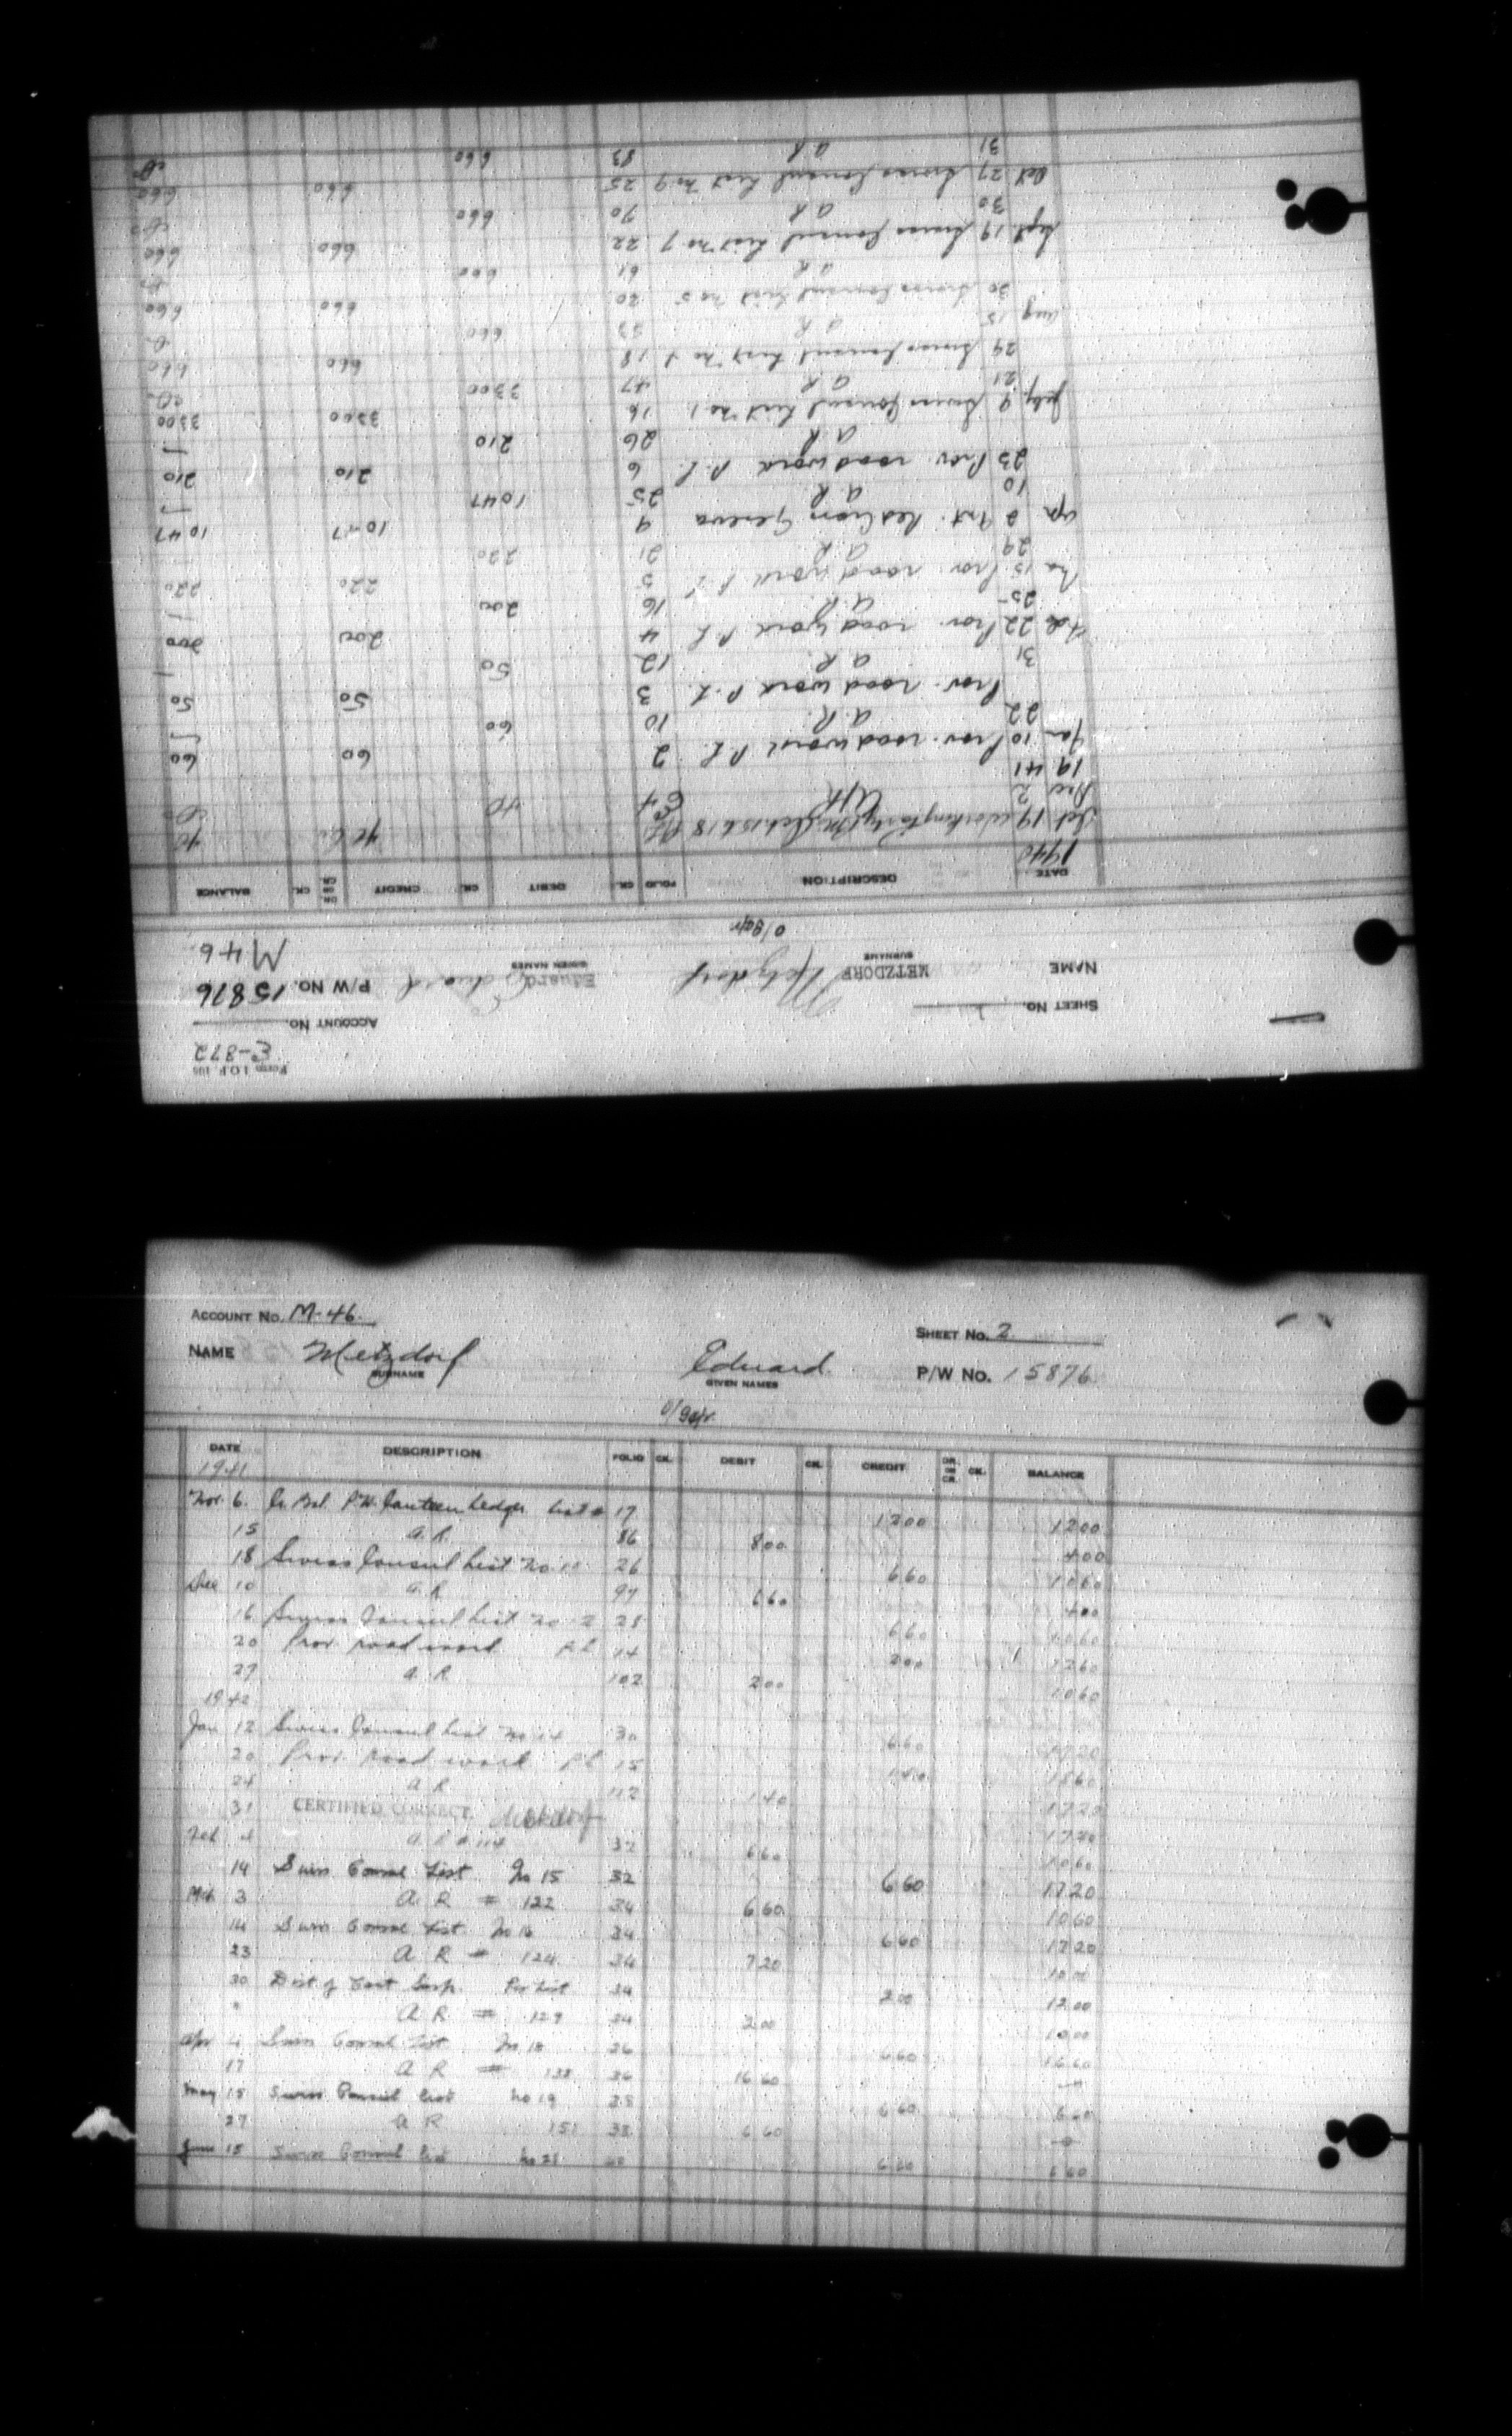 Form I.O.P. 108
E-872
SHEET NO. ACCOUNT NO.
NAME METZDORF Metzdorf Eduard Eduard P/W NO. 15876
SURNAME GIVEN NAMES
M46
O/Gefr
DATE DESCRIPTION FOLIO CK. DEBIT CK. CREDIT DR. OR CR. CK. BALANCE
1940
19 Working Party 40
Dec 2 A.R. 40
1941
Jan 10 Prov. road work P.L. 2 60 60
22 A.R. 10 60
Prov. road work P.L. 3 50 50
31 A.R. 12 50
Feb 22 Prov. road work P.L. 4 200 200
25 A.R. 16 200
Ma 15 Prov. road work P.L. 5 220 220
29 A.R. 21 220
Apr 2 Int. Red Cross Geneva 9 1047 1047
10 A.R. 25 1047
23 Prov. road work P.L. 6 210 210
A.R. 26 210
July 9 Swiss Consul List No 1 16 3300 3300
21 A.R. 47 3300
29 Swiss Consul List No 18 660 660
Aug 15 A.R. 53 660
20 Swiss Consul List No 5 20 660 660
A.R. 61 660
Sept 19 Swiss Consul List No 7 22 660 660
30 A.R. 70 660
Oct 27 Swiss Consul List No 9 25 660 660
31 A.R. 83 660
ACCOUNT NO. M-46. SHEET NO. 2
NAME Metzdorf Eduard P/W NO. 15876
SURNAME GIVEN NAMES
O/Gefr.
DATE DESCRIPTION FOLIO CK. DEBIT CK. CREDIT DR. OR CR. CK. BALANCE
1941
Nov. 6. Cr. Bal. P.W. Canteen Ledger List # 17 1200 1200
15 A.R. 86 800 400
18 Swiss Consul List No. 10 26 660 1060
Dec 10 A.R. 97 660 400
16 Swiss Consul List No 28 660 1060
20 Prov. road work P.L. 14 200 1260
27 A.R. 102 200 1060
1942
Jan 12 Swiss Consul List No 14 30 660 1720
20 Prov. road work P.L. 15 140 1860
24 A.R. 112 140 1720
31 CERTIFIED CORRECT. Metzdorf 1720
Feb 2 A.R. # 114 32 660 1060
14 Swiss Consul List No 15 32 6 60 17 20
Mch 3 A R # 122 34 6 60 10 60
14 Swiss Consul List No 16 34 6 60 17 20
23 A R # 124 34 7 20 10 00
30 Dist of Per List 34 2 00 12 00
" A R # 129 34 2 00 10 00
Apr 4 Swiss Consul List No 18 36 6 60 16 60
17 A R # 138 36 16 60
May 15 Swiss Consul List No 19 38 6 60 6 60
27 A R 151 38 6 60 0
June 15 Swiss Consul List No 21 40 6 60 6 60